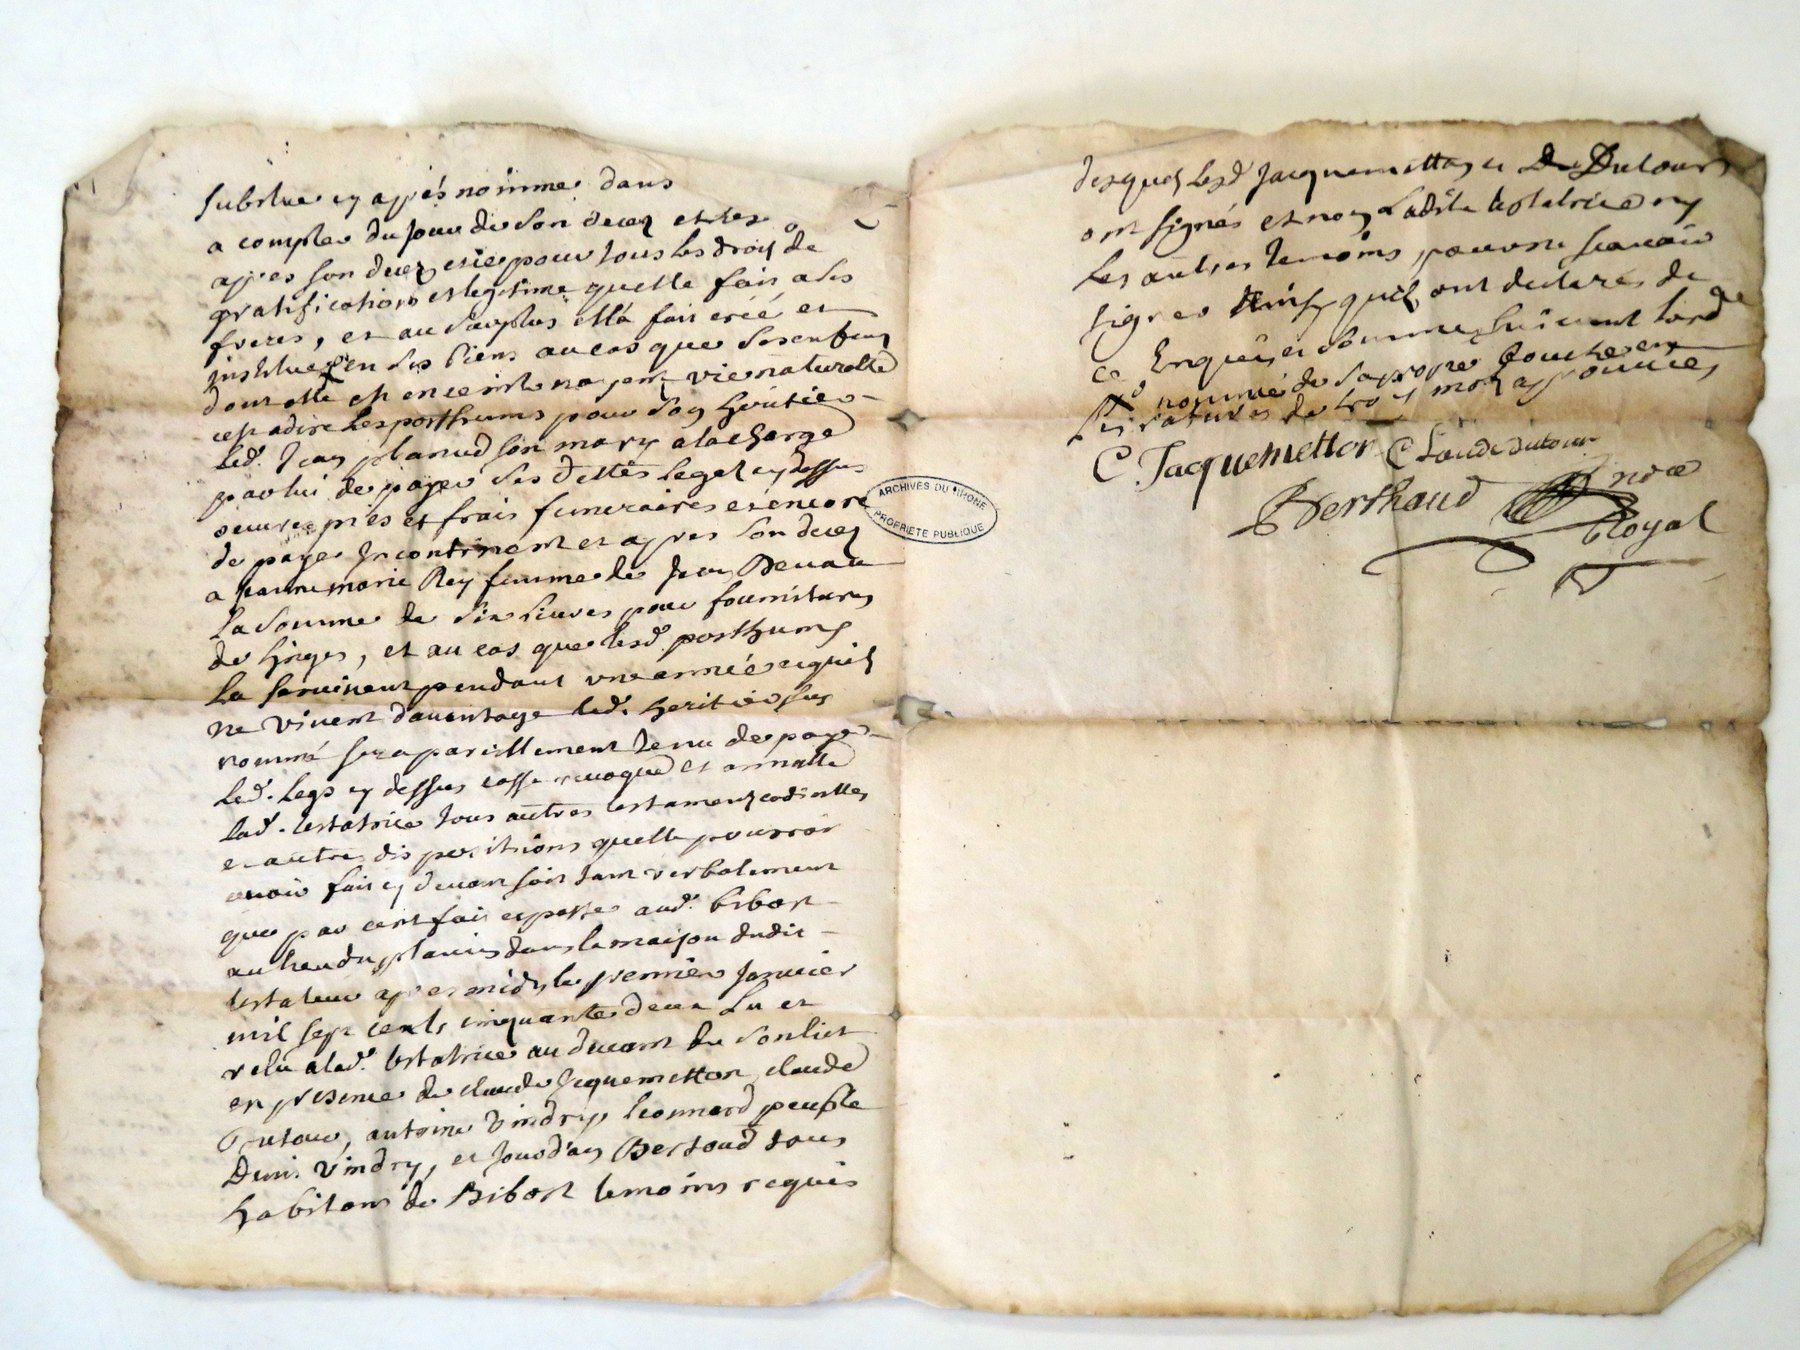 substitue cy apres nomme dans
a compter du jour de son decez et les
apres son decez et ce pour tous les droits de
gratifications et legitime quelle fait a ses
freres, et au surplus ella fait créé et
institue en ses biens au cas que
dont elle est enceinte nayent vie naturelle
cest adire les posthumes pour son heritier
led. Jean planud son mary a la charge
par lui de payer ses dettes legez cy dessus
oeuvres pies et frais funeraires et encore
de payer incontinent et apres son decez
a jeanne marie Rey femme de Jean
la somme de six livres pour fournitures
de linges, et au cas que lesd. posthumes
la survivent pendant une année et quils
ne vivent d'avantage led. heritier sus
nommé sera pareillement tenu de payer
led. legs cy dessus casse revoque et annulle
lad. testatrice tous autres testamentz codicilles
et autres dispositions quelle pourroit
avoir fait cy devant soit tant verbalement
que par ecrit fait et passe aud. bibost
au lieu du planud dans la maison dudit
testateur apres midy le premier janvier
mil sept cents cinquante deux lu et
relu a lad. testatrice au devant de son lict
en presence de claude jaquemetton claude
Dutour, antoine vindry, leonnard peuple
Denis vindry, et jourd'an Bertoud tous
habitans de Bibost temoins requis
desquels lesd. jacquemetton et De Dutour
ont signés et non ladite testatrice ny
les autres temoins pour ne scavoir
signer ainsy quils ont declarés de
ce Enquis et sommés suivant lord.ce
nommé de sa propre bouche en
ratures de trois mots approuvées
C. Jacquemetton Claude dutour
Berthaud nore
Royal
ARCHIVES DU RHONE
PROPRIETE PUBLIQUE